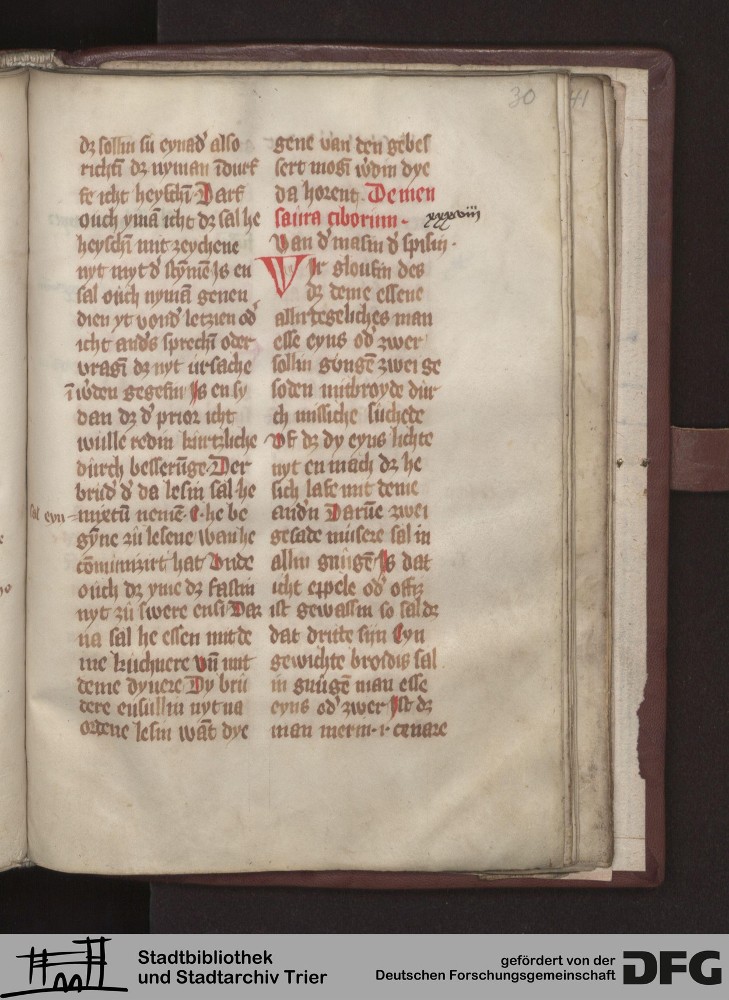 30
41
dz sollin su eynad' also
richtī dz nyman īdurf
fe icht heyschī Darf
ouch ymā icht dz sal he
heyschī mit zeychene
nyt myt d' stȳmē Js en
sal ouch nymā geneu
dien yt vond' letzien od'
icht and's sprechī oder
vragī dz nyt ursache
ī w'den gegefin Js en sy
dan dz d' prior icht
wulle redin kurtzliche
durch besserūge Der
brud' d' da lesin sal he
nuetū nemē. E. he be
gȳne zu lesene wan he
cōminnizirt hat Unde
ouch dz yme dz fastin
nyt zu swere ensi Dar
na sal he essen mit de
me kuchnere vn̄ mit
deme dynere Dy bru
dere ensullin nyt na
ordene lesin wāt dye
sal eyn
gene van den gebes
sert mogī w'din dye
da horent. De men
sura ciborum.
xxxviii
Van d' masin d' spisin.
Wir gloufin des
dz deme essene
allir tegeliches man
esse eyns od' zwer
sollin gnugen zwei ge
soden mitbroyde dur
ch missiche suchede
Uf dz dy eyns lichte
nyt en mach dz he
sich lafe mit deme
and'n Darūe zwei
gesade musere sal in
allin gnugē Js dat
icht eppele od' offz
ist gewassin so sal dz
dat dritte sijn Eyn
gewichte brodis sal
in gnugē man esse
eyns od' zwer Jst dz
man merin. i. cenare
Stadtbibliothek
und Stadtarchiv Trier
gefördert von der
Deutschen Forschungsgemeinschaft
DFG